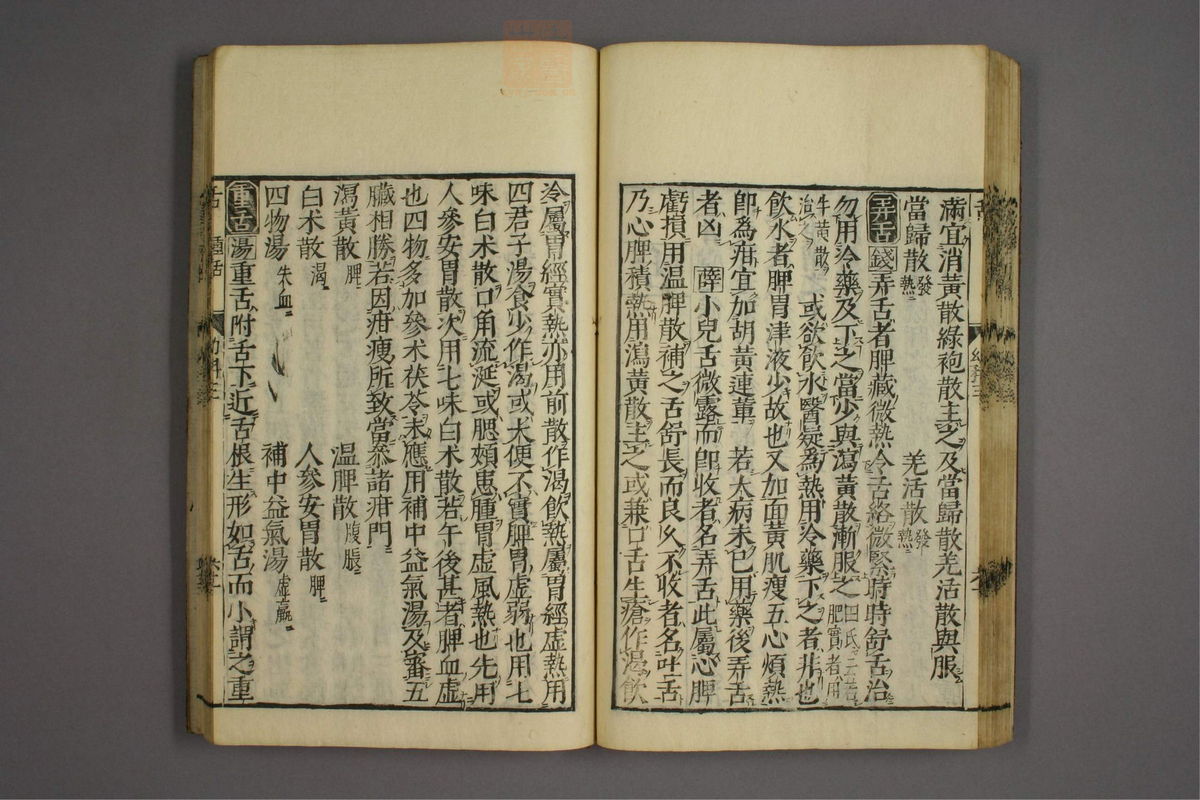 滿宜消黃散綠袍散主之及當歸散羌活散與服
當歸散發熱 羌活散發熱
弄舌 錢 弄舌者脾藏微熱令舌絡微緊時時舒舌治
勿用冷藥及下之當少與瀉黃散漸服之田氏云若肥實者用
牛黃散治之 或欲飲水醫疑為熱用冷藥下之者非也
飲水者脾胃津液少故也又加面黃肌瘦五心煩熱
即為疳宜加胡黃連輩 若大病未已用藥後弄舌
者凶 薛 小兒舌微露而即收者名弄舌此屬心脾
虧損用温脾散補之舌舒長而良久不收者名吐舌
乃心脾積熱用瀉黃散主之或兼口舌生瘡作渴飲
冷屬胃經實熱亦用前散作渴飲熱屬胃經虛熱用
四君子湯食少作渴或大便不實脾胃虛弱也用七
味白朮散口角流涎或腮頰患腫胃虛風熱也先用
人參安胃散次用七味白朮散若午後甚者脾血虛
也四物多加參朮茯苓未應用補中益氣湯及審五
臟相勝若因疳瘦所致當參諸疳門
瀉黃散脾 温脾散腹脹
白朮散渴 人參安胃散脾
四物湯血 補中益氣湯虛羸
重舌 湯 重舌附舌下近舌根生形如舌而小謂之重